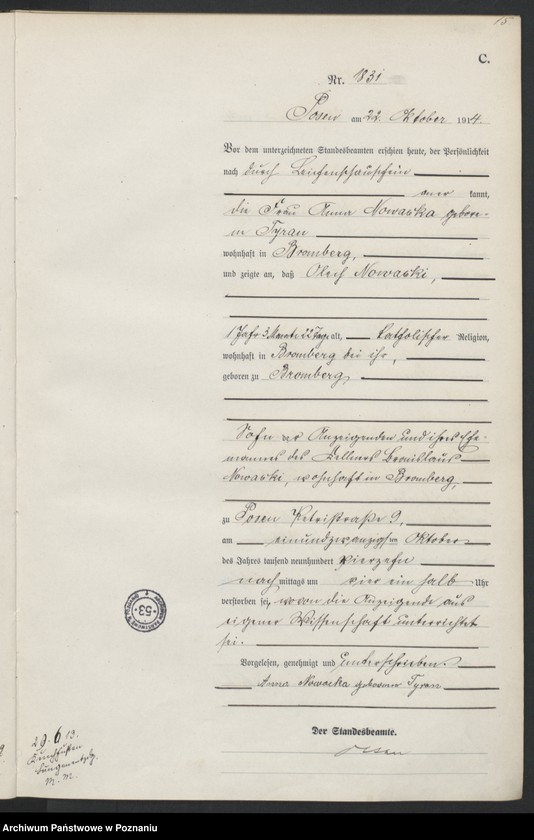 15
C.
Nr. 1831
Posen am 22. Oktober 1914.
Vor dem unterzeichneten Standesbeamten erschien heute, der Persönlichkeit
nach durch Leichenschauschein
kannt,
die Frau Anna Nowacka gebore-
ne Tyran
wohnhaft in Bromberg,
und zeigte an, daß Nowacki,
1 Jahr 3 Monate 22 Tage alt, katholischer Religion,
wohnhaft in Bromberg bei ihr,
geboren zu Bromberg,
Sohn der Anzeigenden und ihres Ehe-
mannes des Kellners Bronislaus
Nowacki, wohnhaft in Bromberg,
zu Posen Petristraße 9,
am einundzwanzigsten Oktober
des Jahres tausend neunhundert vierzehn
nachmittags um vier ein halb Uhr
verstorben sei, wovon die Anzeigende aus
eigener Wissenschaft unterrichtet
sei.
Vorgelesen, genehmigt und unterschrieben.
Anna Nowacka geborene Tyran
Der Standesbeamte.
29. 6 13.
53
Archiwum Państwowe w Poznaniu